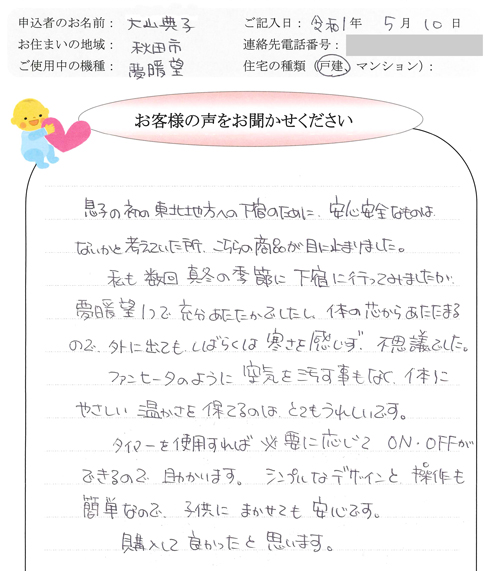 申込者のお名前： 大山典子
ご記入日：令和1年 5月 10日
お住まいの地域： 秋田市
連絡先電話番号：
ご使用中の機種： 夢暖望
住宅の種類（戸建、マンション）：
お客様の声をお聞かせください
息子の初の東北地方への下宿のために、安心安全なものは
ないかと考えていた所、こちらの商品が目に止まりました。
私も数回 真冬の季節に下宿に行ってみましたが、
夢暖望1つで充分あたたかでしたし、体の芯からあたたまる
ので、外に出ても、しばらくは寒さを感じず、不思議でした。
ファンヒータのように 空気を汚す事もなく、体に
やさしい 温かさを保てるのは、とてもうれしいです。
タイマーを使用すれば 必要に応じて ON・OFFが
できるので 助かります。 シンプルなデザインと、操作も
簡単なので、子供に まかせても 安心です。
購入して 良かったと 思います。